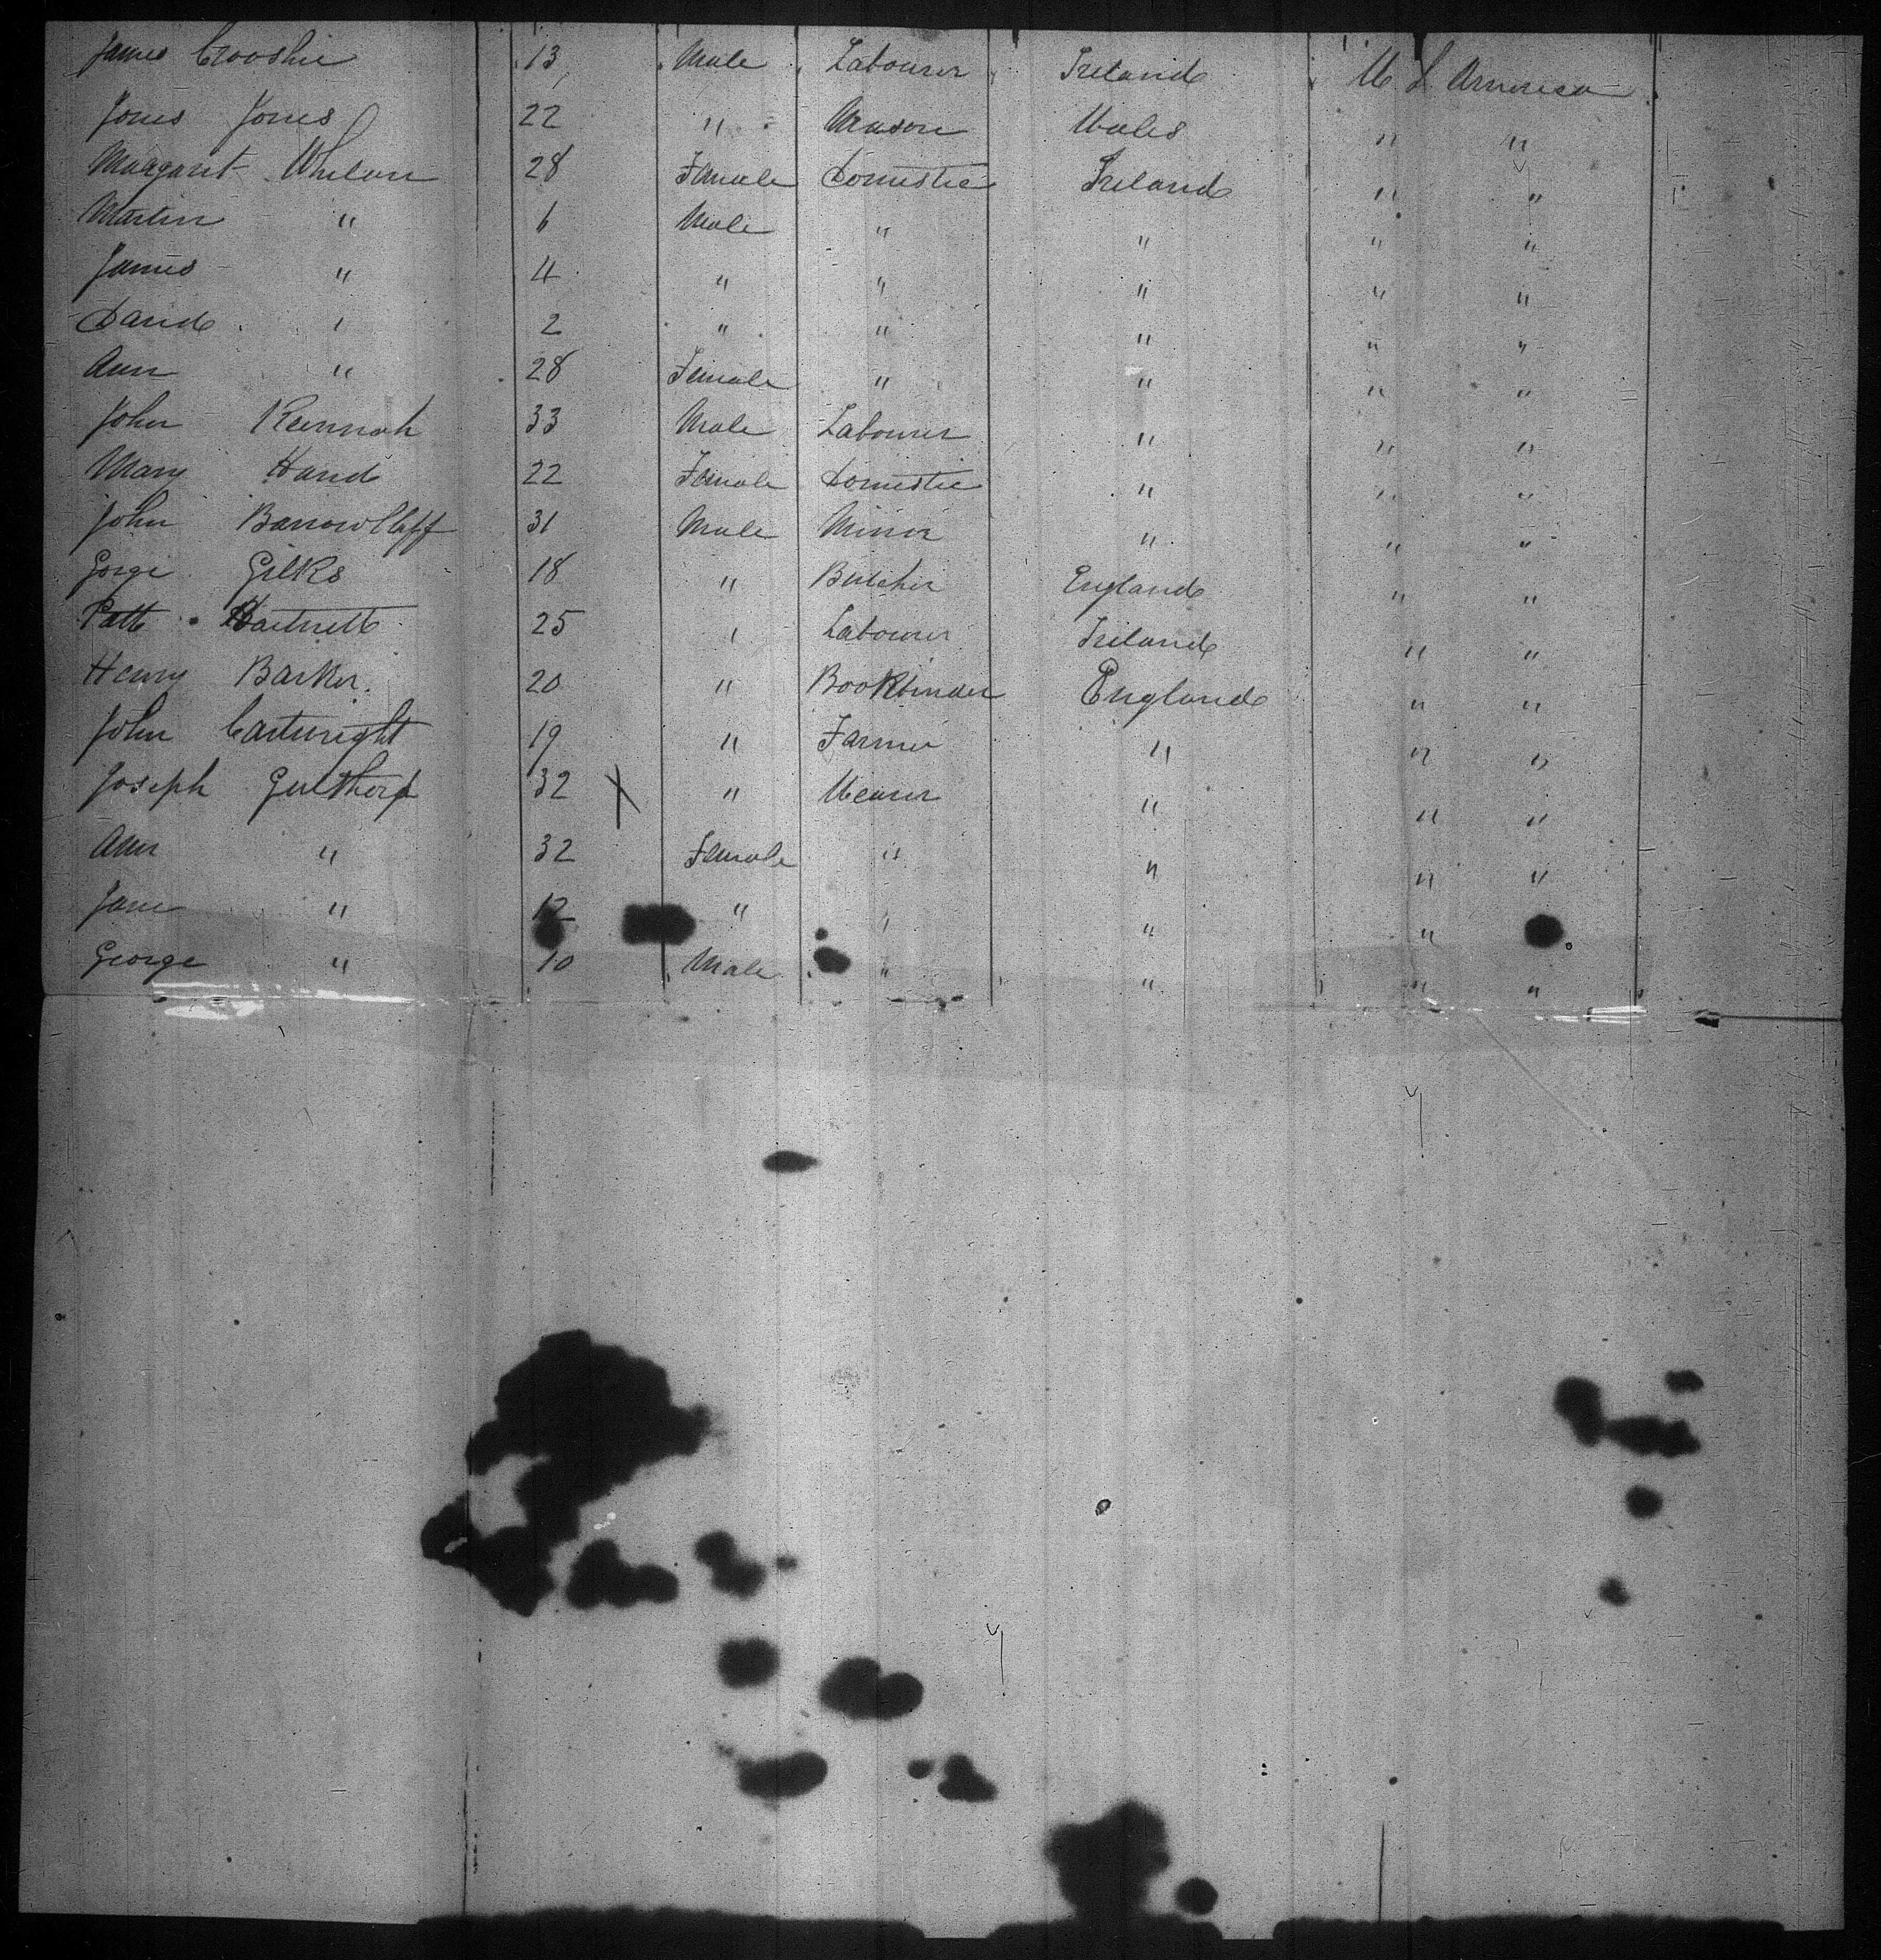 James Crooshie 13 Male Labourer Ireland U S America
Jones Jones 22 " Mason Wales " "
Margaret Whelan 28 Female Domestic Ireland " "
Martin " 6 Male " " " "
James " 4 " " " " "
David " 2 " " " " "
Ann " 28 Female " " " "
John Kennah 33 Male Labourer " " "
Mary Hand 22 Female Domestic " " "
John Barrowcliff 31 Male Minor " " "
Gorge Gilks 18 " Butcher England " "
Patt Hartnett 25 " Labourer Ireland " "
Henry Barker 20 " Bookbinder England " "
John Cartwright 19 " Farmer " " "
Joseph 32 X " " " "
Ann " 32 Female " " " "
Jane " 12 " " " "
George " 10 Male " " " "